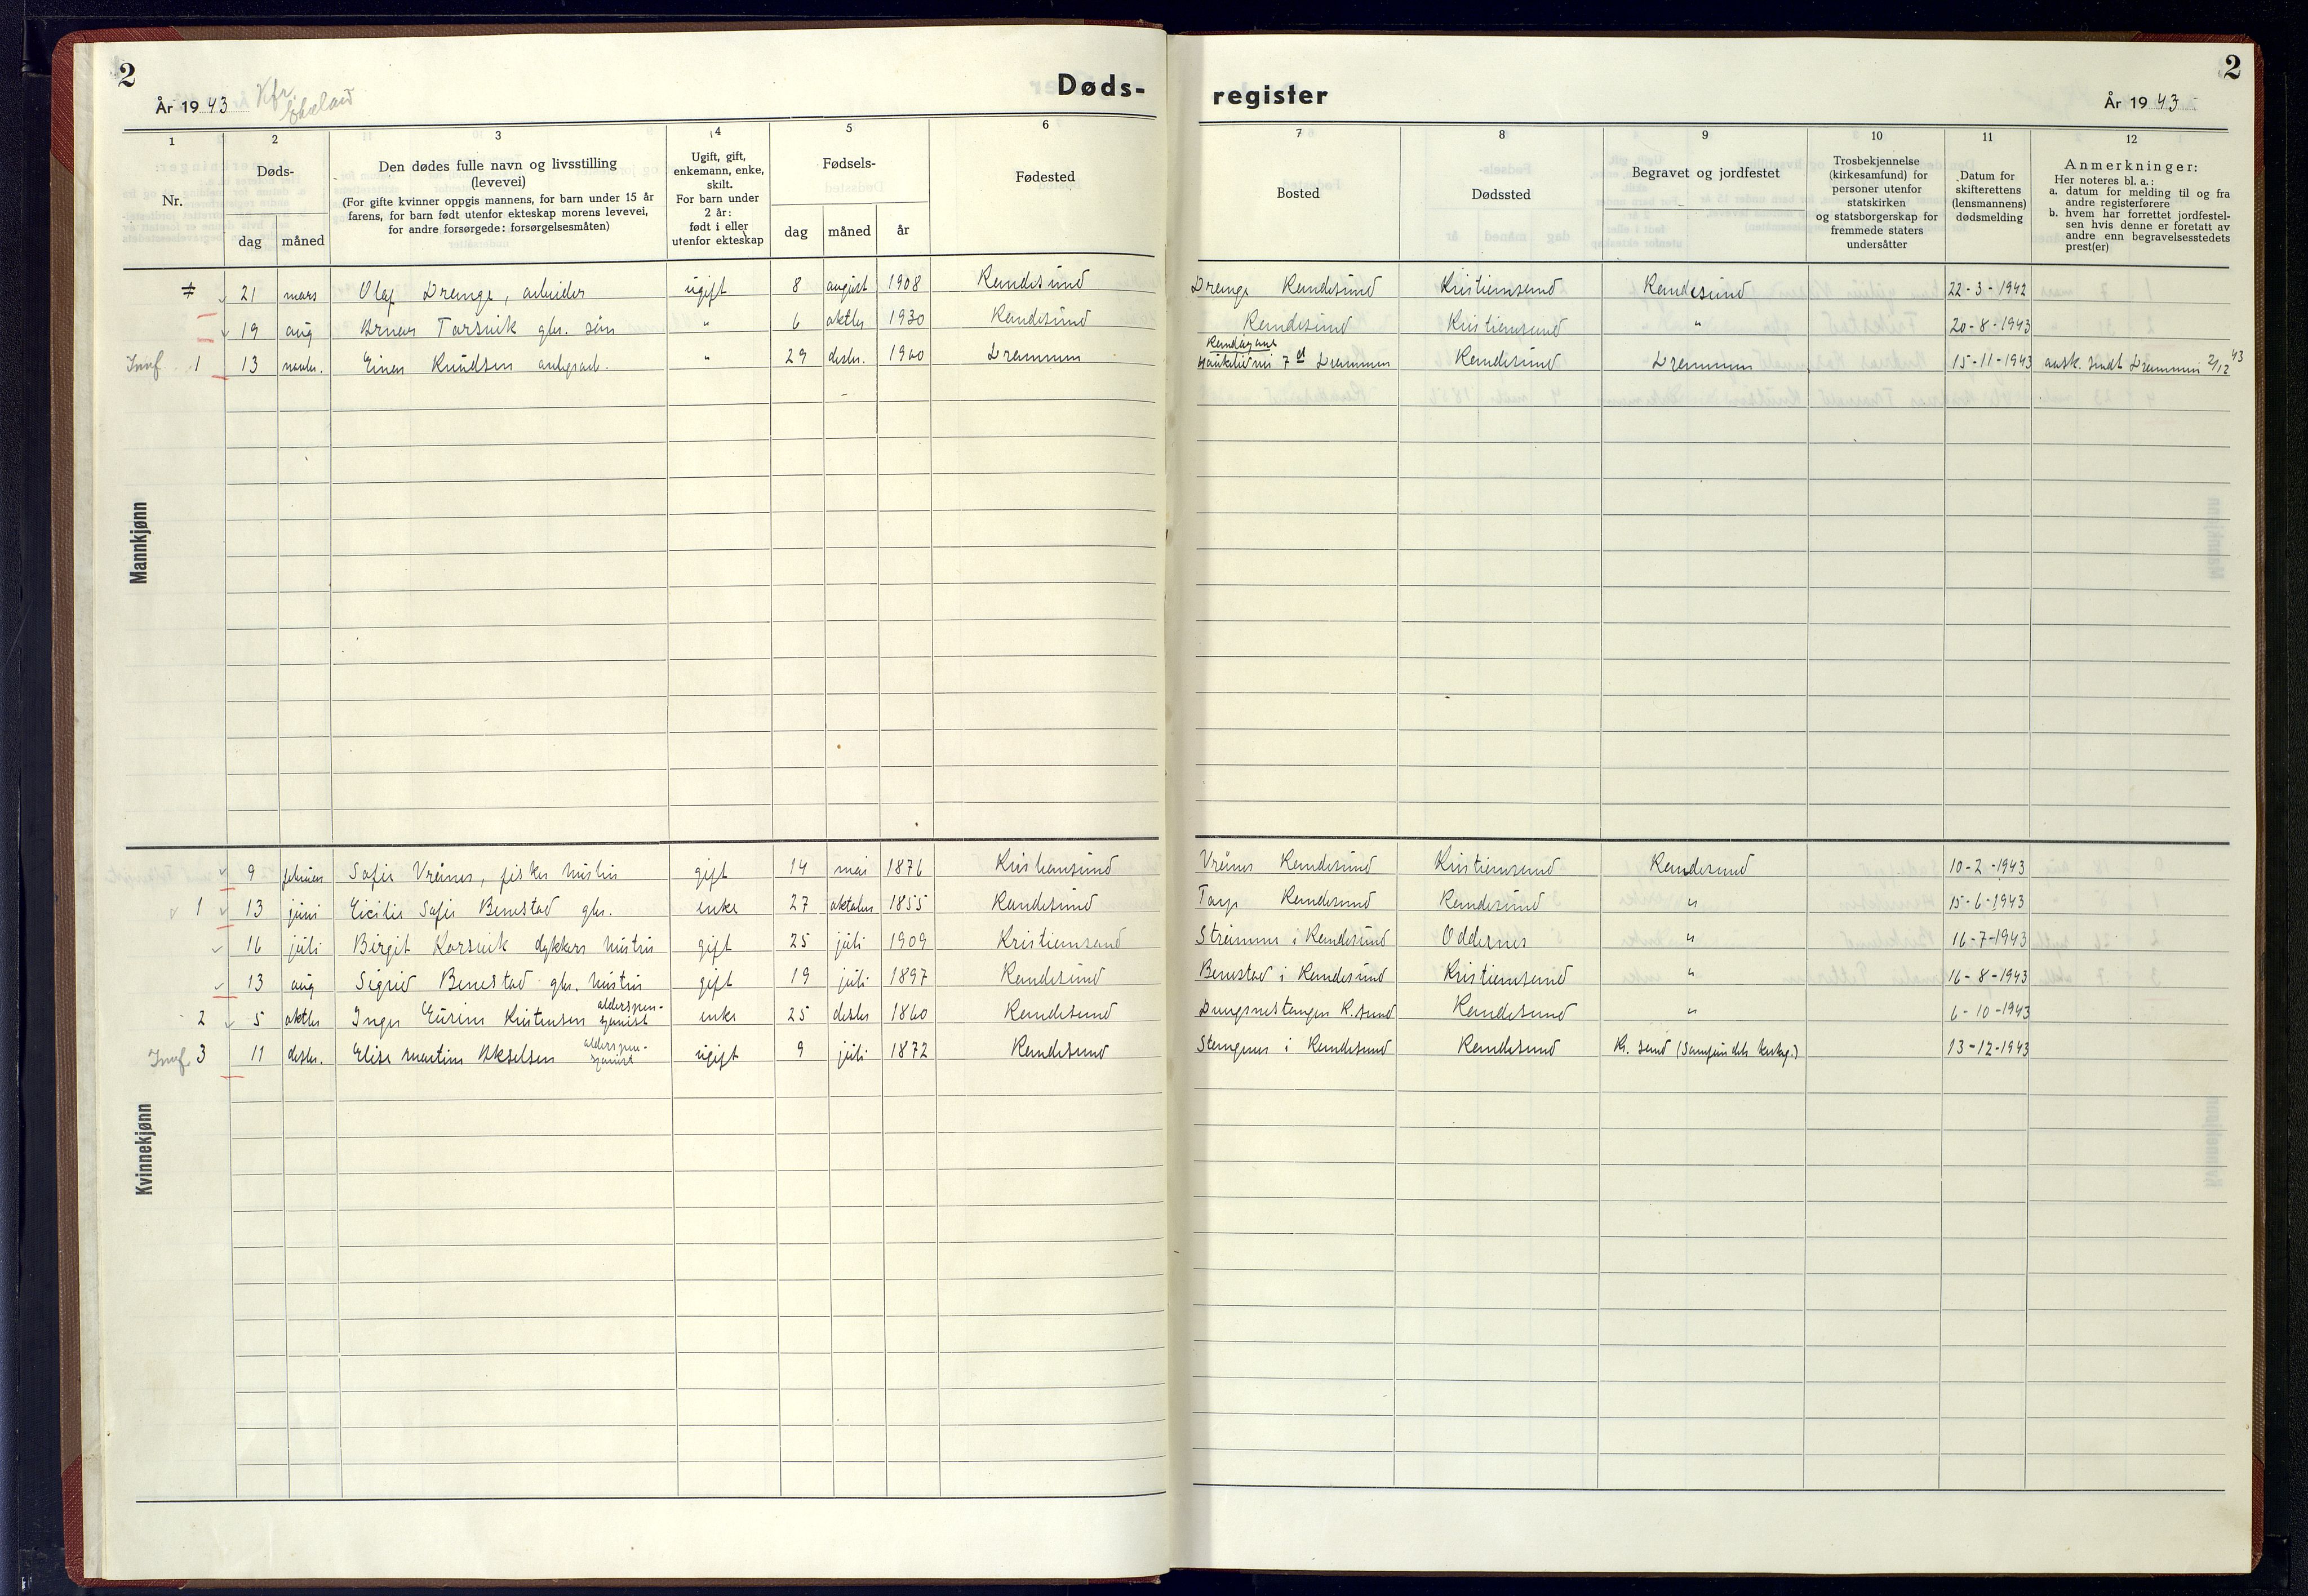 2
År 1943 Kfr.
Døds-
1 2 3 4 5 6
Nr.
Døds-
dag måned
Den dødes fulle navn og livsstilling
(levevei)
(For gifte kvinner oppgis mannens, for barn under 15 år
farens, for barn født utenfor ekteskap morens levevei,
for andre forsørgede: forsørgelsesmåten)
Ugift, gift,
enkemann, enke,
skilt.
For barn under
2 år:
født i eller
utenfor ekteskap
Fødsels-
dag måned år
Fødested
Mannkjønn
21 mars Olaf Drange, arbeider ugift 8 august 1908 Randesund
19 aug Arnar Torsvik gbr. søn " 6 oktbr 1930 Randesund
1 13 novbr. Einar Knudsen ugift " 29 desbr. 1900 Drammen
Kvinnekjønn
9 februar Sofie Vrånes, fisker hustru gift 14 mai 1876 Kristiansund
1 13 juni Cicilie Sofie Benestad gbr. enke 27 oktober 1855 Randesund
16 juli Birgit Korsvik dykkers hustru gift 25 juli 1909 Kristiansand
13 aug Sigrid Benestad gbr. hustru gift 19 juli 1897 Randesund
2 5 oktbr Inger Kristensen alderspen-
sjonist enke 25 desbr 1860 Randesund
3 11 desbr. Elise Martine Akselsen alderspen-
sjonist ugift 9 juli 1872 Randesund
register
År 1943
2
7 8 9 10 11 12
Bosted
Dødssted
Begravet og jordfestet
Trosbekjennelse
(kirkesamfund) for
personer utenfor
statskirken
og statsborgerskap for
fremmede staters
undersåtter
Datum for
skifterettens
(lensmannens)
dødsmelding
Anmerkninger:
Her noteres bl. a.:
a. datum for melding til og fra
andre registerførere
b. hvem har forrettet jordfestel-
sen hvis denne er foretatt av
andre enn begravelsesstedets
prest(er)
Drange Randesund Kristiansand Randesund 22-3-1942
Randesund Kristiansand " 20-8-1943
7 Drammen Randesund Drammen 15-11-1943 avsk. sendt Drammen 2/12 43
Vrånes Randesund Kristiansand Randesund 10-2-1943
Torp Randesund Randesund " 15-6-1943
Strømme i Randesund Oddernes " 16-7-1943
Benestad i Randesund Kristiansand " 16-8-1943
Dvergsnestangen R.sund Randesund " 6-10-1943
Stangenes i Randesund Randesund Kr. sand 13-12-1943